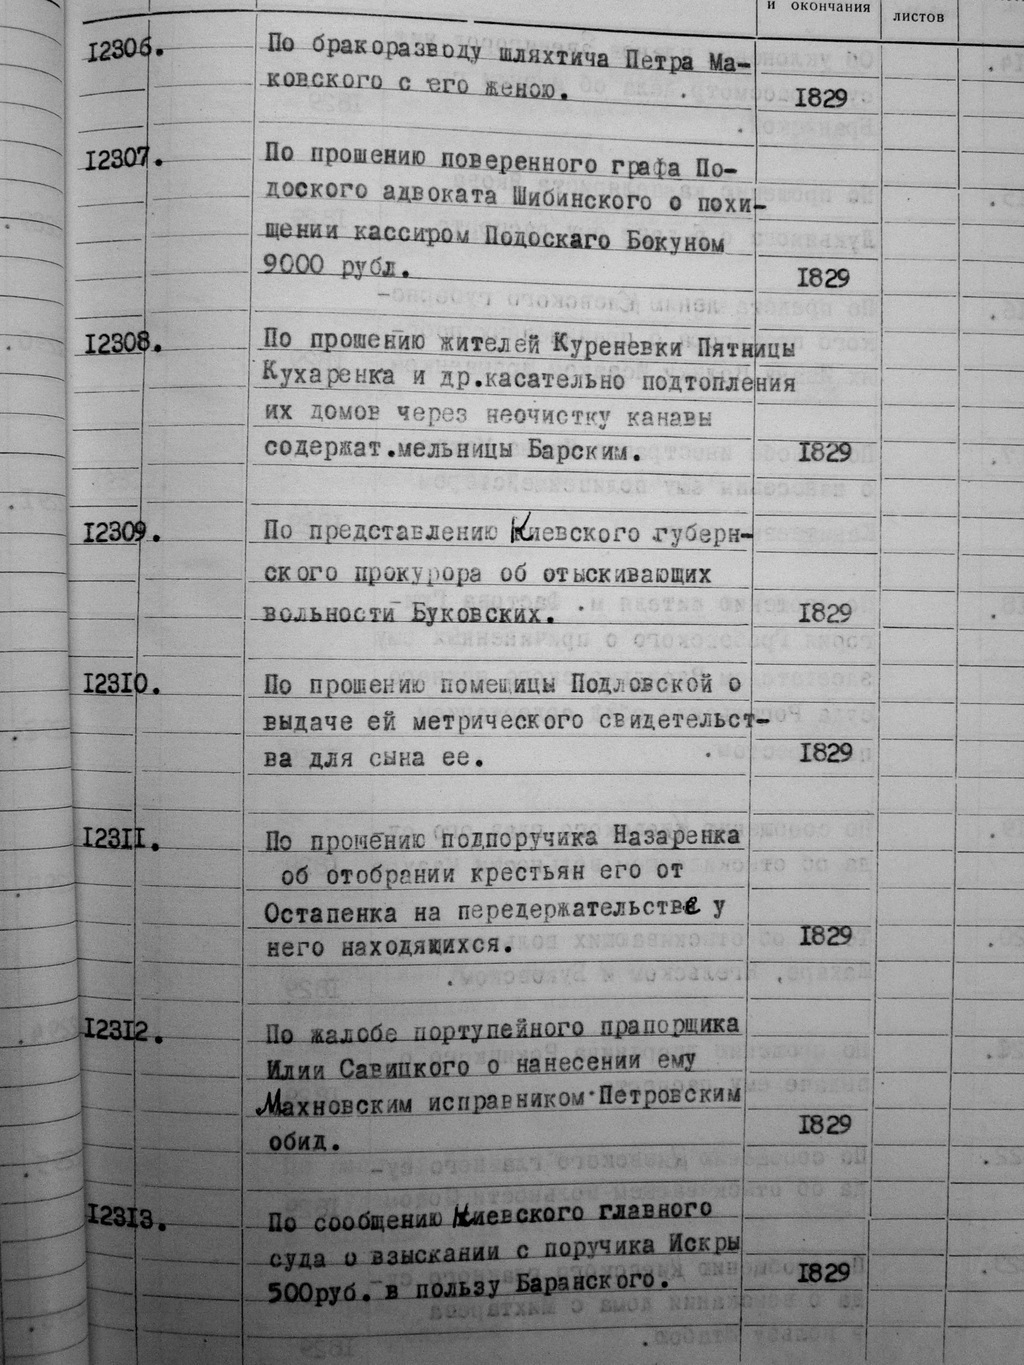 и окончания
листов
12306.
По бракоразводу шляхтича Петра Ма-
ковского с его женою.
1829
12307.
По прошению поверенного графа По-
доского адвоката Шибинского о похи-
щении кассиром Подоскаго Бокуном
9000 рубл.
1829
12308.
По прошению жителей Куреневки Пятницы
Кухаренка и др.касательно подтопления
их домов через неочистку канавы
содержат.мельницы Барским.
1829
12309.
По представлению Киевского губерн-
ского прокурора об отыскивающих
вольности Буковских.
1829
12310.
По прошению помещицы Подловской о
выдаче ей метрического свидетельст-
ва для сына ее.
1829
12311.
По прошению подпоручика Назаренка
об отобрании крестьян его от
Остапенка на передержательстве у
него находящихся.
1829
12312.
По жалобе портупейного прапорщика
Илии Савицкого о нанесении ему
Махновским исправником Петровским
обид.
1829
12313.
По сообщению Киевского главного
суда о взыскании с поручика Искры
500руб. в пользу Баранского.
1829